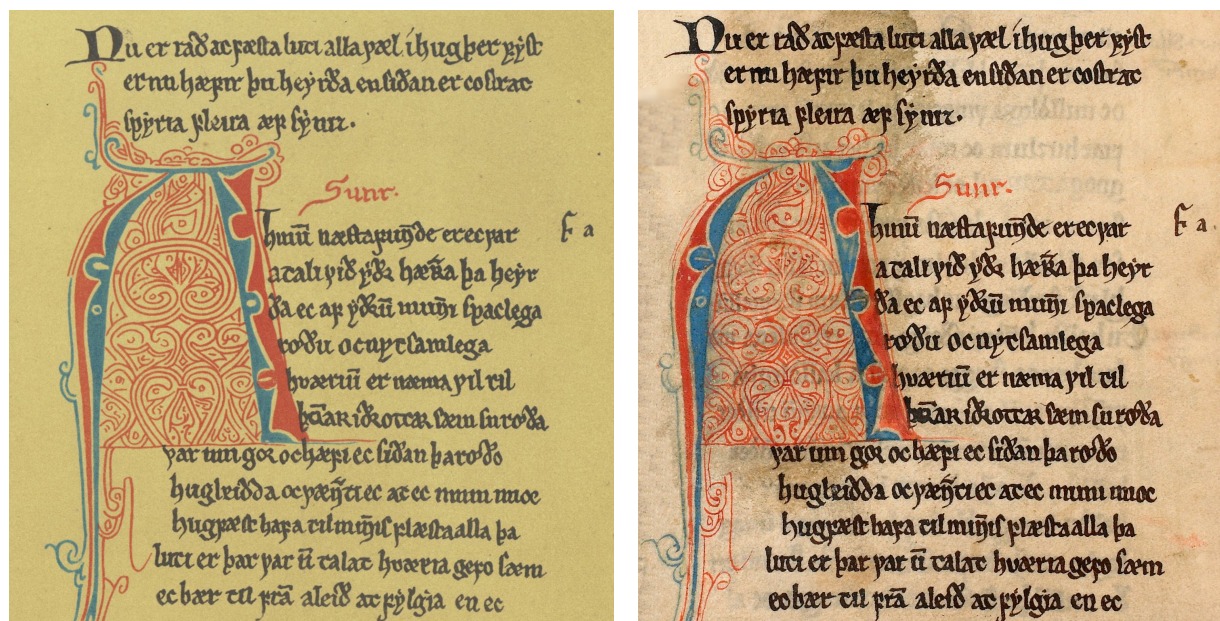 Nu er rað at fæsta luti alla væl i hug þer þyſt
er nu hæfir þu heyrða en siðan er cost at
spyria fleira æf synizt.
Sunr.
A hinū næsta fundde er ec var
F a
a tali við yðr hærra þa heyr
ða ec af yðrū munni spaclega
roðu oc nytsamlega
hværiū er næma vil til
þæirar idrottar sæm su roða
var um gor oc hæfi ec siðan þa roðo
hugleidda oc vænti ec at ec mun mioc
hugfæst hafa til minnis flæsta alla þa
luti er þar var ū talat hværia gezo sæm
ec bær til fra aleið at fylgia en ec
Nu er rað at fæsta luti alla væl i hug þer þyſt
er nu hæfir þu heyrða en siðan er cost at
spyria fleira æf synizt.
Sunr.
A hinū næsta fundde er ec var
F a
a tali við yðr hærra þa heyr
ða ec af yðrū munni spaclega
roðu oc nytsamlega
hværiū er næma vil til
þæirar idrottar sæm su roða
var um gor oc hæfi ec siðan þa roðo
hugleidda oc vænti ec at ec mun mioc
hugfæst hafa til minnis flæsta alla þa
luti er þar var ū talat hværia gezo sæm
ec bær til fra aleið at fylgia en ec